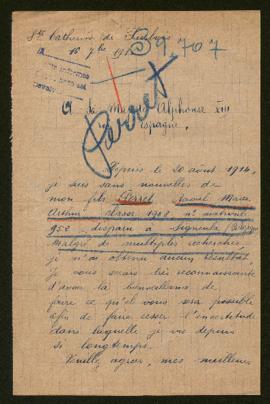 Ste Catherine de
16 7bre 19
59.707
A Sa Majesté Alphonse XIII
roi d'Espagne.
Perret
Depuis le 20 août 1914,
je suis sans nouvelles de
mon fils Perret Raoul
classe 1908, n° matricule
952 disparu à
Malgré de multiples recherches,
je n'ai obtenu aucun résultat
je vous serais très reconnaissante
d'avoir la bienveillance de
faire ce qu'il vous sera possible
afin de faire cesser l'incertitude
dans laquelle je vis depuis
si longtemps.
Veuillez agréer, mes meilleurs